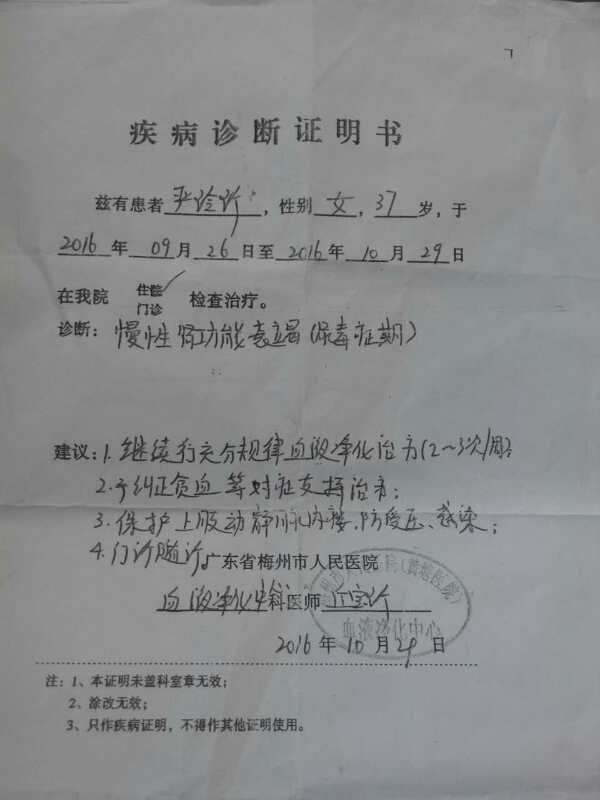 疾病诊断证明书
兹有患者严玲,性别女,37岁,于
2016年09月26日至2016年10月29日
在我院 住院 门诊 检查治疗。
诊断:慢性肾功能衰竭(尿毒症期)
建议:1.继续行充分规律血液净化治疗(2~3次/周);
2.予纠正贫血等对症支持治疗;
3.保护上肢动静脉内瘘,防受压、感染;
4.门诊随诊。广东省梅州市人民医院
血液净化中科医师
2016年10月29日
梅州市人民医院(黄塘医院)
血液净化中心
注:1、本证明未盖科室章无效;
2、涂改无效;
3、只作疾病证明,不得作其他证明使用。